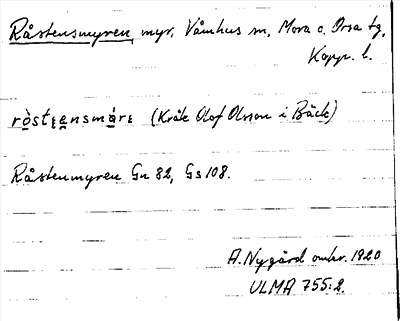 Råstensmyren, myr, Våmhus sn, Mora o. Orsa tg,
Kopp. l.
(Kråk Olof Olsson i Bäck)
Råstenmyren Gn 82, Gs 108.
A. Nygård omkr. 1920
ULMA 755:2